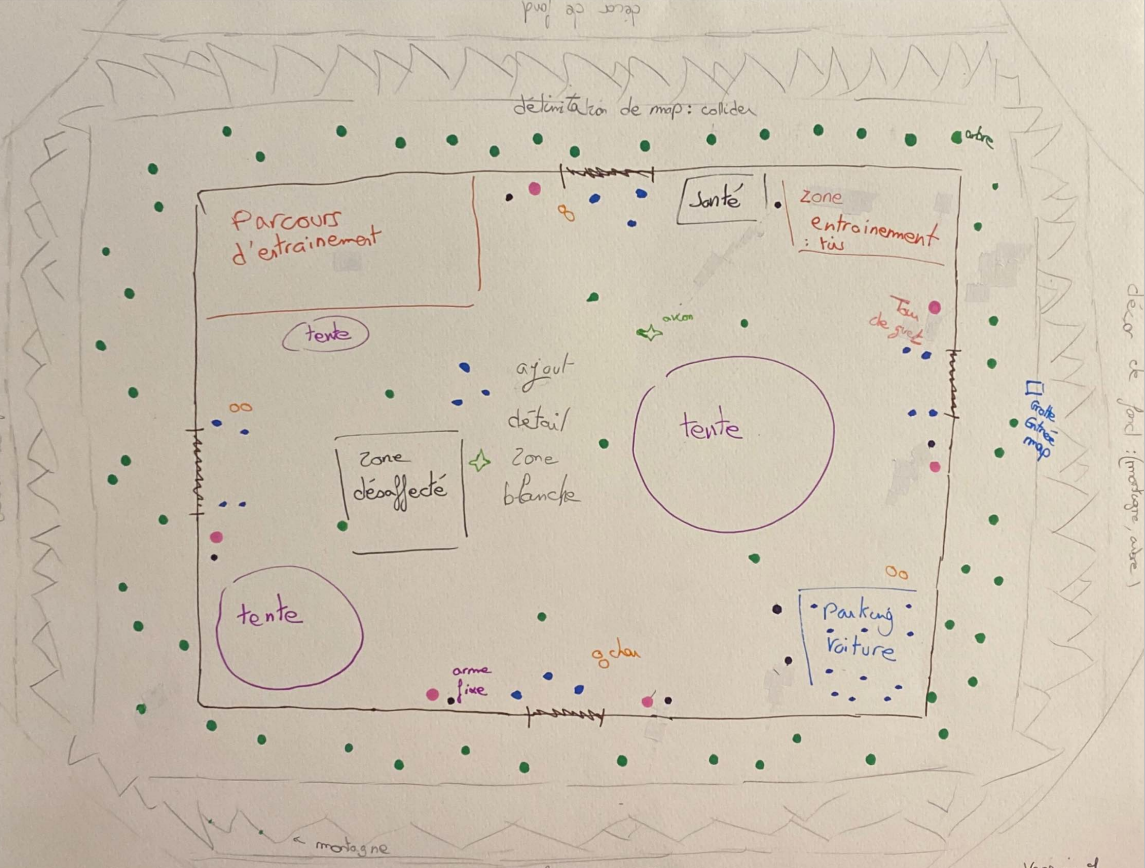 décor de fond
délimitation de map : collider
arbre
Parcours
d'entrainement
Santé
zone
entrainement
: tirs
tente
avion
Tour
de guet
ajout
détail
zone
blanche
tente
zone
désaffecté
Grotte
Entrée
map
décor de fond : (montagne, arbre)
tente
Parking
voiture
arme
fixe
char
montagne